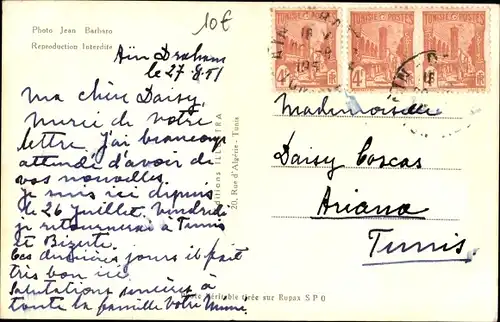 Photo Jean Barbaro
Reproduction Interdite
10€
Aïn Draham
le 27.8.51
Ma chère Daisy,
Merci de votre
lettre. J'ai beaucoup
attendu d'avoir de
vos nouvelles.
Je suis ici depuis
le 26 Juillet. Vendredi
je retournerai à Tunis
et Bizerte.
Ces derniers jours il fait
très bon ici
Salutations sincères à
toute la famille Votre
Editions ILLUSTRA
20, Rue d'Algérie - Tunis
TUNISIE POSTES
4F
TUNISIE POSTES
4F
TUNISIE POSTES
Mademoiselle
Daisy Coscas
Ariana
Tunis
Véritable tirée sur Rupax S P O